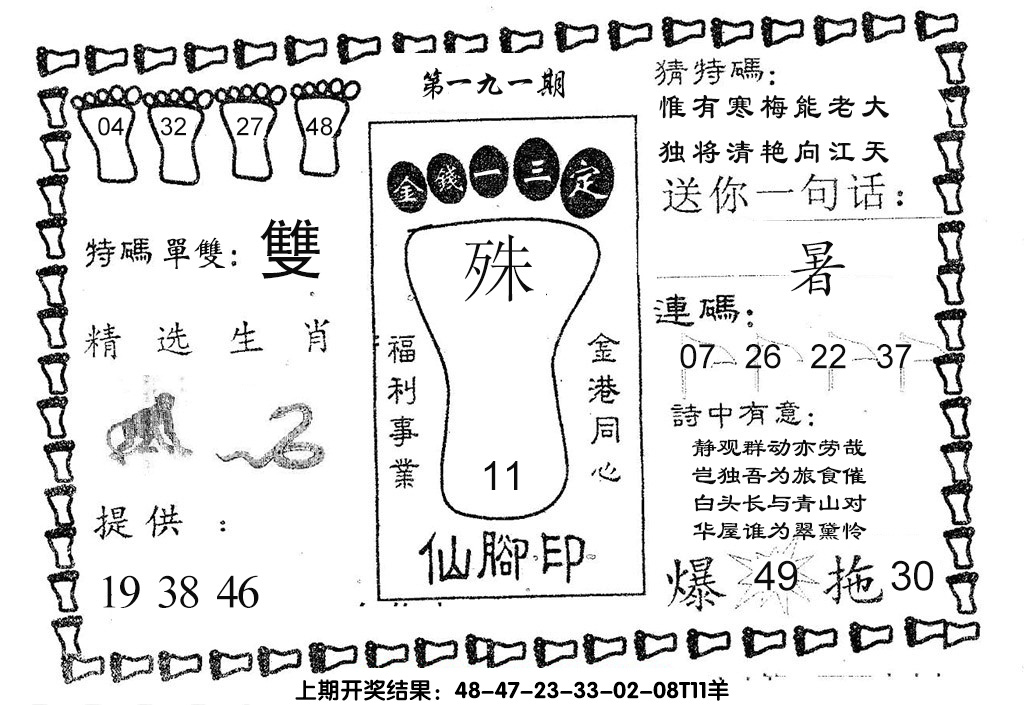 第一九一期
04 32 27 48
特碼單雙：雙
精选生肖
提供：
19 38 46
金錢一三定
殊
福利事業
金港同心
11
仙腳印
猜特碼：
惟有寒梅能老大
独将清艳向江天
送你一句话：
暑
連碼：
07 26 22 37
詩中有意：
静观群动亦劳哉
岂独吾为旅食催
白头长与青山对
华屋谁为翠黛怜
爆 49 拖 30
上期开奖结果：48-47-23-33-02-08T11羊